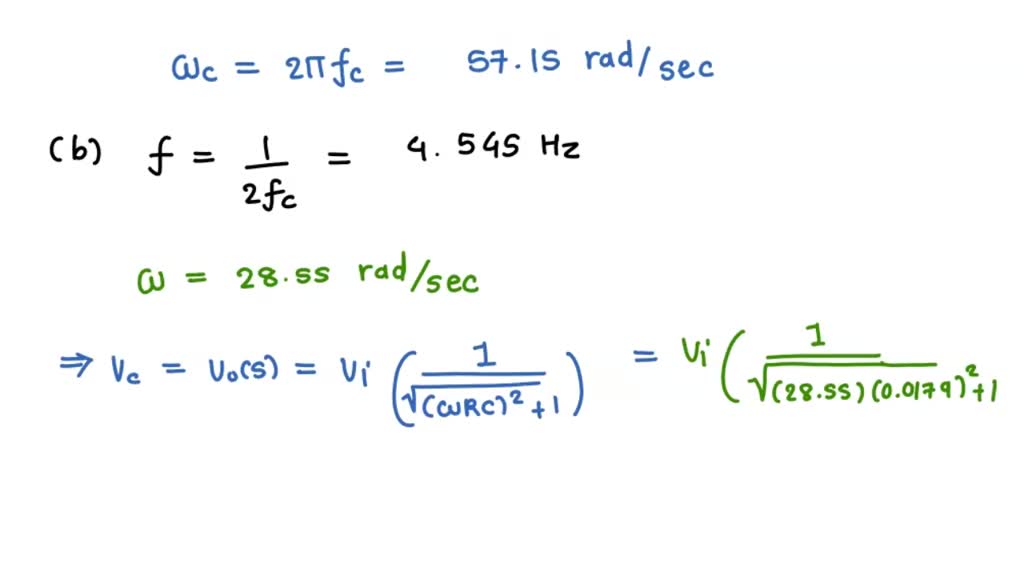 ωc = 2πfc = 57.15 rad/sec
(b) f = 1/2fc = 4.545 Hz
ω = 28.55 rad/sec
⇒ Vc = Vo(s) = Vi (1/√(ωRC)²+1) = Vi (1/√(28.55)(0.0179)²+1